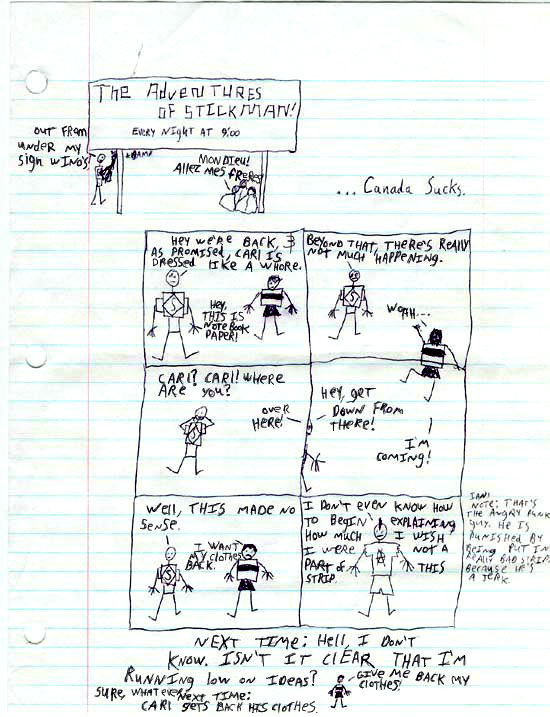 THE ADVENTURES
OF STICKMAN!
EVERY NIGHT AT 9:00
OUT FROM
UNDER MY
SIGN WINOS
MON DIEU!
ALLEZ MES FRERES!
... Canada Sucks.
HEY WE'RE BACK, &
AS PROMISED, CARL IS
DRESSED LIKE A WHORE.
HEY,
THIS IS
NOTEBOOK
PAPER!
S
BEYOND THAT, THERE'S REALLY
NOT MUCH HAPPENING.
S
WOAH...
CARL? CARL! WHERE
ARE YOU?
OVER
HERE!
HEY, GET
DOWN FROM
THERE!
I'M
COMING!
Well, THIS MADE NO
SENSE.
I WANT
MY CLOTHES
BACK.
S
I DON'T EVEN KNOW HOW
TO BEGIN EXPLAINING
HOW MUCH I WISH
I WERE NOT A
PART OF THIS
STRIP.
A
IAN!
NOTE: THAT'S
THE ANGRY PUNK
GUY. HE IS
PUNISHED BY
BEING PUT IN
REALLY BAD STRIPS
BECAUSE HE'S
A JERK.
NEXT TIME: Hell, I DON'T
KNOW. ISN'T IT CLEAR THAT I'M
RUNNING LOW ON IDEAS?
SURE, WHATEVER.
NEXT TIME:
CARL GETS BACK HIS CLOTHES.
GIVE ME BACK MY
CLOTHES!